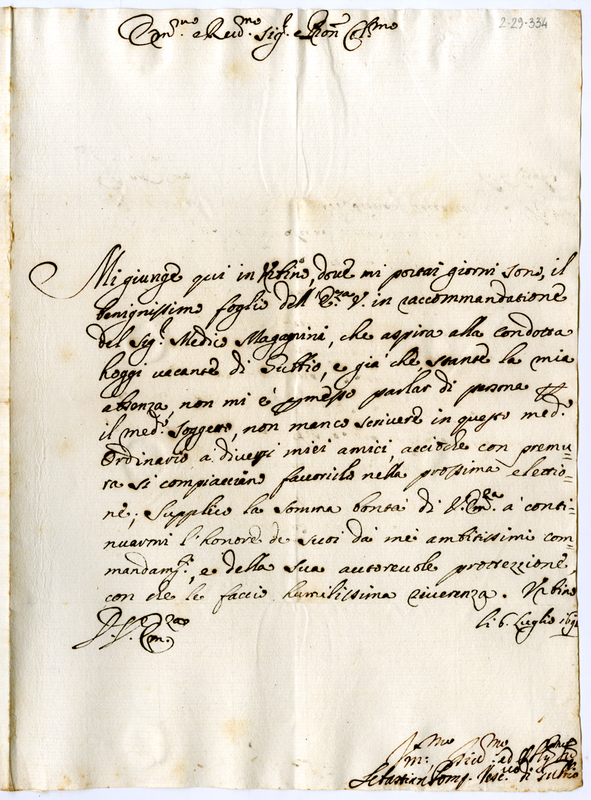 2-29-334
Em.mo e Reu.mo Sig.r e Pron Col.mo
Mi giunge qui in Urbino, doue mi portai giorni sono, il
benignissimo foglio dell' Em.za V. in raccommandatione
del Sig.r Medico Magagnini, che aspira alla condotta
hoggi uacante di Gubbio, e già che stante la mia
absenza, non mi è permesso parlar di persona
il med.o soggetto, non manco scriuere in questo med.o
Ordinario a diuersi miei amici, acciòche con premu=
ra si compiaccino fauorirlo nella prossima elettio=
ne; supplico la somma bontà di V. Em.za à conti=
nuarmi l'honore de suoi da me ambitissimi com=
mandam.ti, e della sua autoreuole protezzione,
con che le faccio humilissima riuerenza. Urbino
li 6. Luglio
D. V. Em.za
Sebastian Pomp. Vesc.o di Gubbio